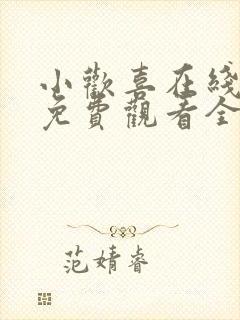 小歡喜在綫
免費觀看全
范婧睿